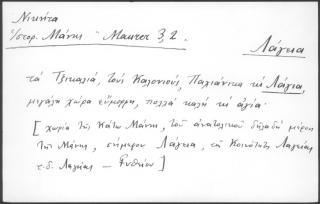 Νικήτα
Ἱστορ. Μάνης Maurer 3, 2.
Λάγεια
τὰ Τζικαλιά, τοὺς Καλονιούς, Παλιάνικα κὴ Λάγια,
μεγάλη χώρα εὔμορφη, πολλὰ καλὴ κὴ ἁγία·
[χωρία τῆς Κάτω Μάνης, τοῦ ἀνατολικοῦ δηλαδὴ μέρους
τῆς Μάνης, σήμερον Λάγεια, τῆς Κοινότητος Λαγείας
τ. δ. Λαγείας – Γυθείου]